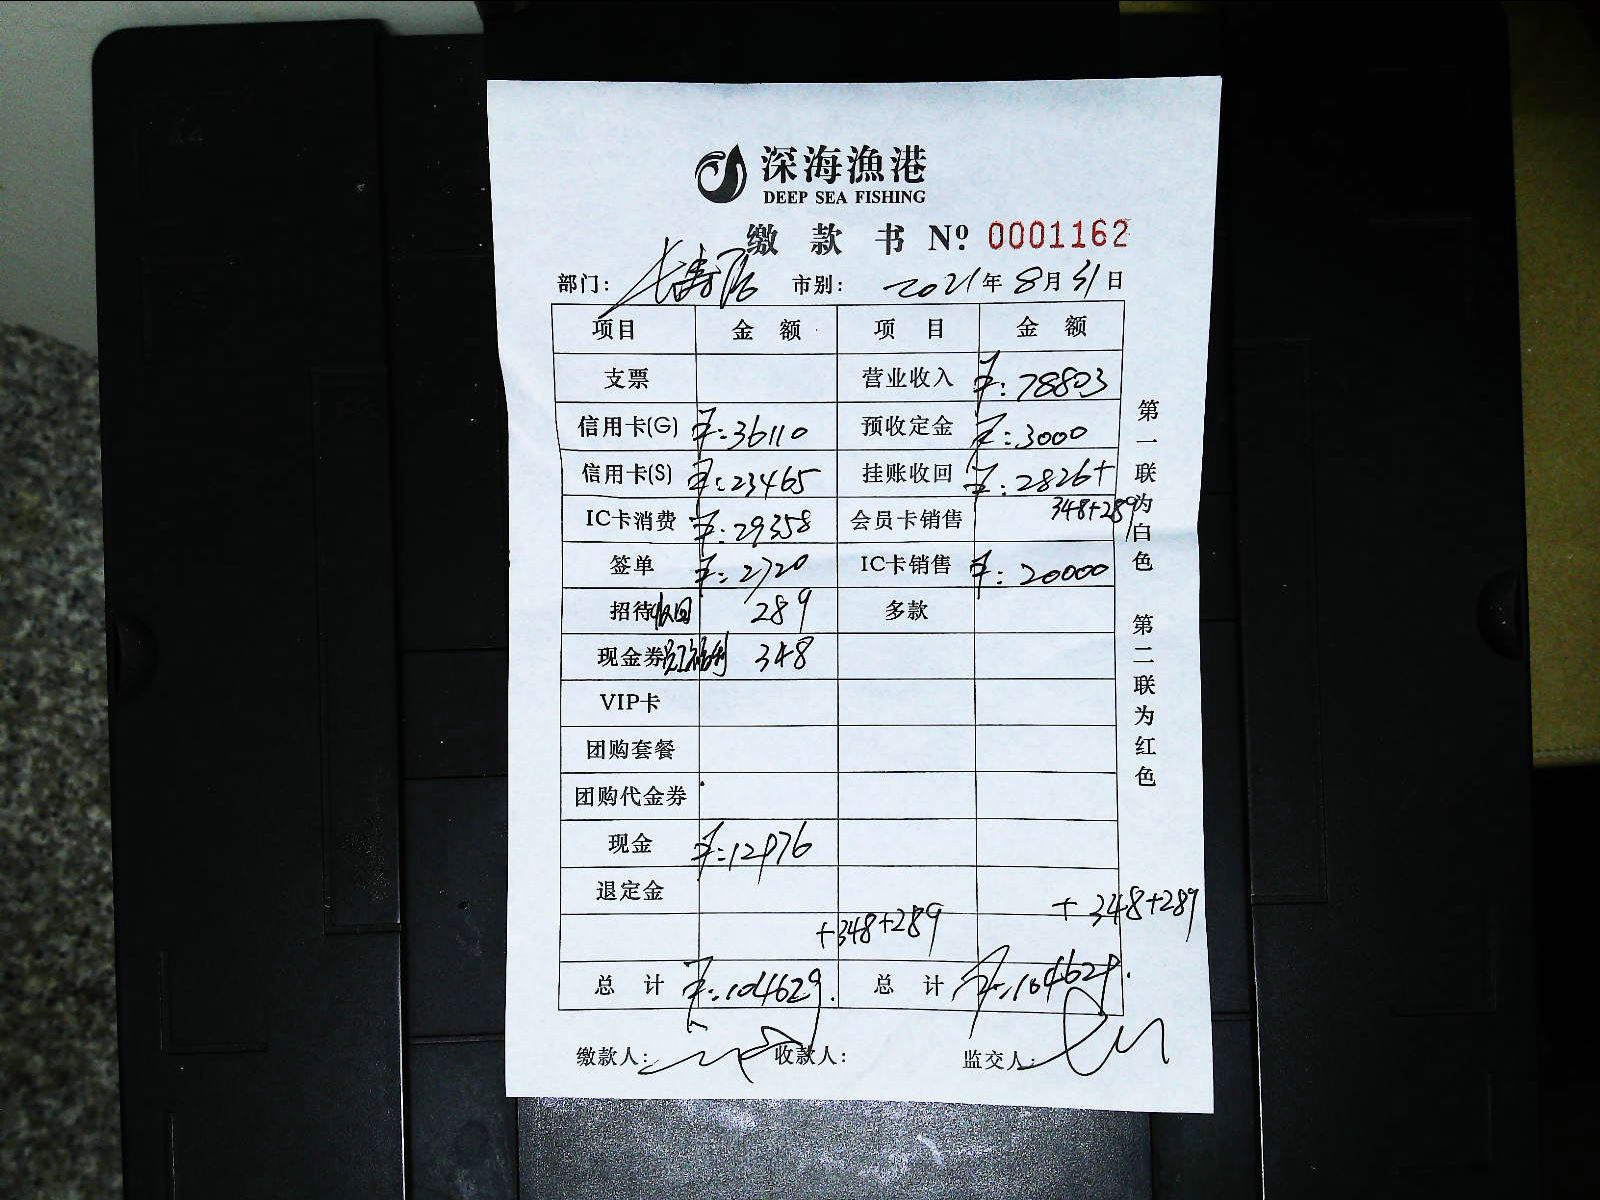 深海漁港
DEEP SEA FISHING
缴款书 Nº 0001162
部门: 长寿店 市别: 2021年8月31日
项目 金额 项目 金额
支票 营业收入 ¥:78803
信用卡(G) ¥:36110 预收定金 ¥:3000
信用卡(S) ¥:23465 挂账收回 ¥:2826+
348+289
IC卡消费 ¥:29358 会员卡销售
签单 ¥:2720 IC卡销售 ¥:20000
招待收回 289 多款
现金券员工福利 348
VIP卡
团购套餐
团购代金券
现金 ¥:12976
退定金
+348+289 +348+289
总计 ¥:104629. 总计 ¥:104629.
缴款人: 收款人: 监交人:
第一联为白色 第二联为红色